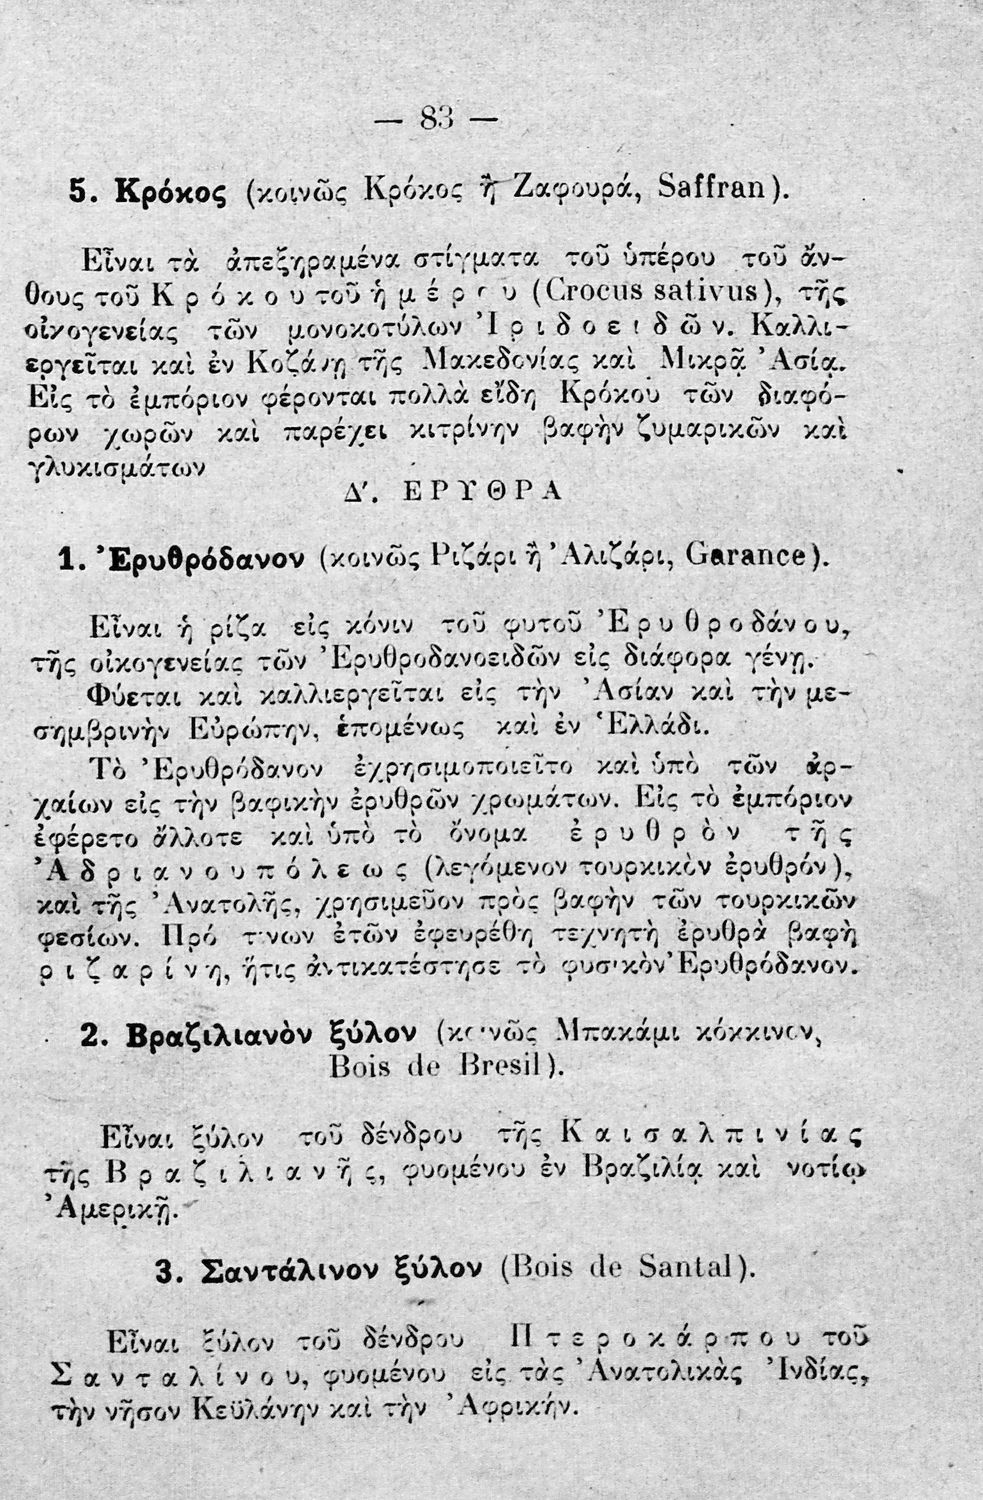 — 83 —
5. Κρόκος (κοινῶς Κρόκος ἢ Ζαφουρά, Saffran).
Εἶναι τὰ ἀπεξηραμένα στίγματα τοῦ ὑπέρου τοῦ ἄν-
θους τοῦ Κρόκου τοῦ ἡμέρου (Crocus sativus), τῆς
οἰκογενείας τῶν μονοκοτύλων Ἰριδοειδῶν. Καλλι-
εργεῖται καὶ ἐν Κοζάνῃ τῆς Μακεδονίας καὶ Μικρᾷ Ἀσίᾳ.
Εἰς τὸ ἐμπόριον φέρονται πολλὰ εἴδη Κρόκου τῶν διαφό-
ρων χωρῶν καὶ παρέχει κιτρίνην βαφὴν ζυμαρικῶν καὶ
γλυκισμάτων
Δ΄. ΕΡΥΘΡΑ
1. Ἐρυθρόδανον (κοινῶς Ριζάρι ἢ Ἀλιζάρι, Garance).
Εἶναι ἡ ρίζα εἰς κόνιν τοῦ φυτοῦ Ἐρυθροδάνου,
τῆς οἰκογενείας τῶν Ἐρυθροδανοειδῶν εἰς διάφορα γένη.
Φύεται καὶ καλλιεργεῖται εἰς τὴν Ἀσίαν καὶ τὴν με-
σημβρινὴν Εὐρώπην, ἑπομένως καὶ ἐν Ἑλλάδι.
Τὸ Ἐρυθρόδανον ἐχρησιμοποιεῖτο καὶ ὑπὸ τῶν ἀρ-
χαίων εἰς τὴν βαφικὴν ἐρυθρῶν χρωμάτων. Εἰς τὸ ἐμπόριον
ἐφέρετο ἄλλοτε καὶ ὑπὸ τὸ ὄνομα ἐρυθρὸν τῆς
Ἀδριανουπόλεως (λεγόμενον τουρκικὸν ἐρυθρόν),
καὶ τῆς Ἀνατολῆς, χρησιμεῦον πρὸς βαφὴν τῶν τουρκικῶν
φεσίων. Πρό τινων ἐτῶν ἐφευρέθη τεχνητὴ ἐρυθρὰ βαφὴ
ριζαρίνη, ἥτις ἀντικατέστησε τὸ φυσικὸν Ἐρυθρόδανον.
2. Βραζιλιανὸν ξύλον (κοινῶς Μπακάμι κόκκινον,
Bois de Bresil).
Εἶναι ξύλον τοῦ δένδρου τῆς Καισαλπινίας
τῆς Βραζιλιανῆς, φυομένου ἐν Βραζιλίᾳ καὶ νοτίῳ
Ἀμερικῇ.
3. Σαντάλινον ξύλον (Bois de Santal).
Εἶναι ξύλον τοῦ δένδρου Πτεροκάρπου τοῦ
Σανταλίνου, φυομένου εἰς τὰς Ἀνατολικὰς Ἰνδίας,
τὴν νῆσον Κεϋλάνην καὶ τὴν Ἀφρικήν.